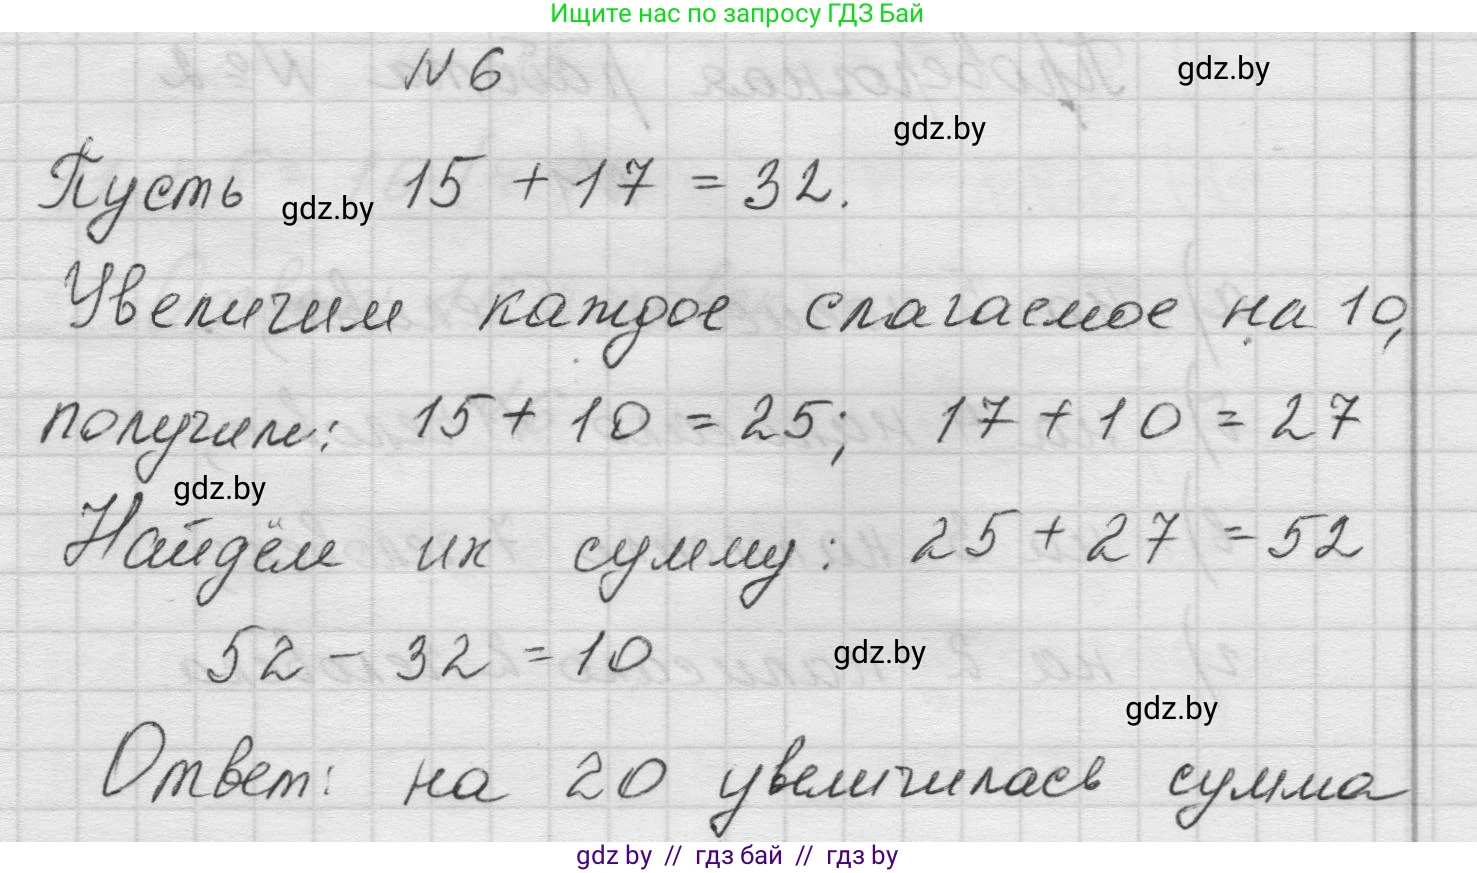 Ищите нас по запросу ГДЗ Бай
№ 6
gdz.by
gdz.by
Пусть 15 + 17 = 32.
gdz.by
Увеличим каждое слагаемое на 10,
получим: 15 + 10 = 25; 17 + 10 = 27
gdz.by
Найдём их сумму: 25 + 27 = 52
52 - 32 = 10
gdz.by
gdz.by
Ответ: на 20 увеличилась сумма
gdz by // гдз бай // гдз by